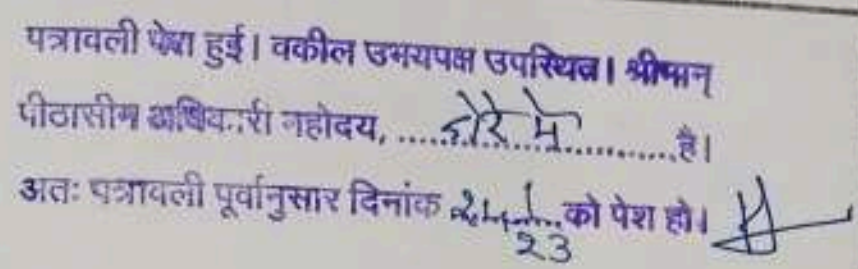 पत्रावली पेश हुई। वकील उभयपक्ष उपस्थित। श्रीमान्
पीठासीन अधिकारी महोदय, ....दौरे में............है।
अतः पत्रावली पूर्वानुसार दिनांक को पेश हो।
23